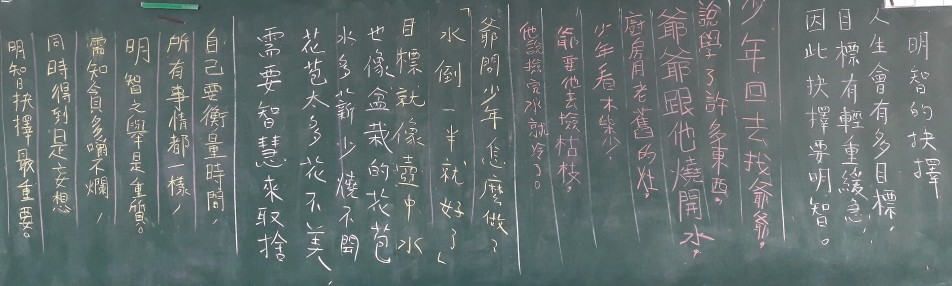 明智的抉擇
人生會有多目標，
目標有輕重緩急，
因此抉擇要明智。
少年回去找爺爺，
說學了許多東西，
爺爺跟他燒開水，
廚房用老舊的灶，
少年看木柴少，
爺要他去撿枯枝，
他說撿完水就冷了。
爺問少年怎麼做？
「水倒一半就好了」
目標就像壺中水
也像盆栽的花苞
水多薪少燒不開
花苞太多花不美，
需要智慧來取捨
自己要衡量時間，
所有事情都一樣，
明智之舉是重質。
需知貪多嚼不爛，
同時得到是妄想
明智抉擇最重要。